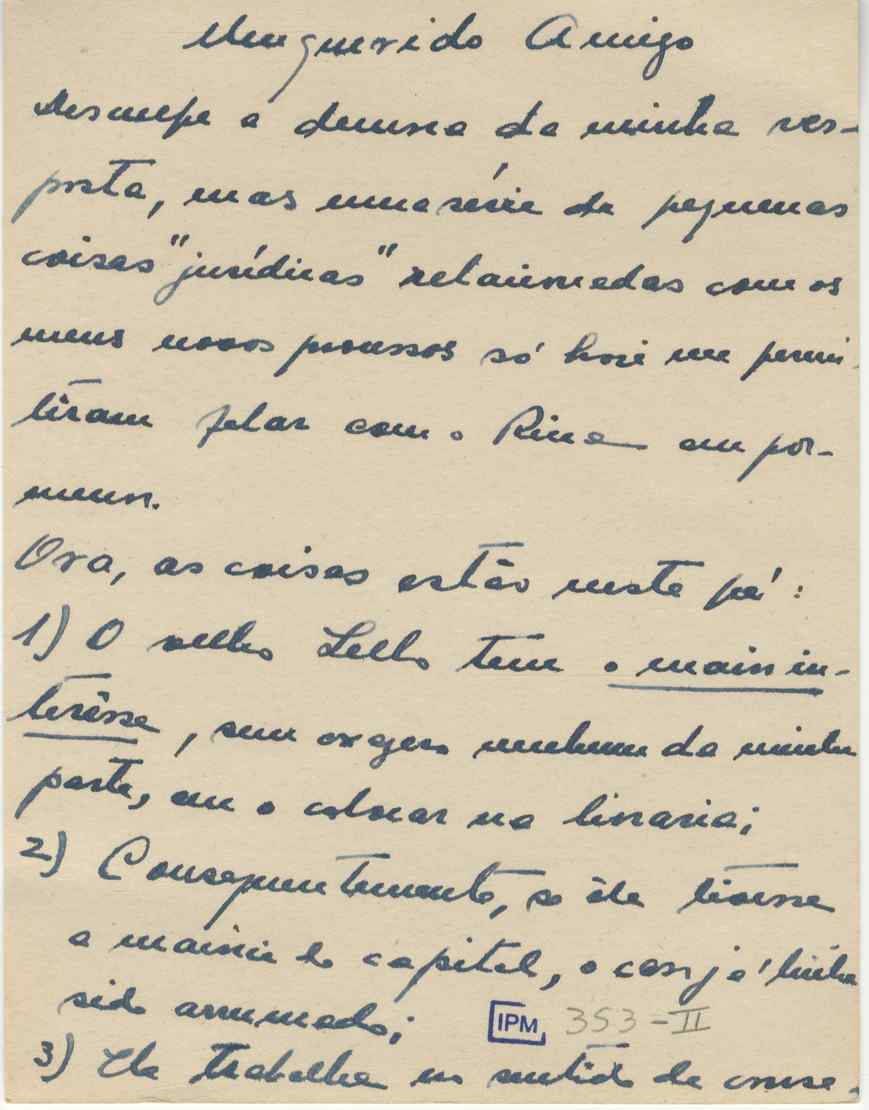 Meu querido Amigo
Desculpe a demora da minha res-
posta, mas uma série de pequenas
coisas "jurídicas" relacionadas com os
meus novos processos só hoje me permi-
tiram falar com o Rina em por-
menor.
Ora, as coisas estão neste pé:
1) O velho Lello tem o maior in-
terêsse, sem exagero nenhum da minha
parte, em o colocar na livraria;
2) Consequentemente, se êle tivesse
a maioria do capital, o caso já tinha
sido arrumado;
IPM 353-II
3) Ele trabalha no sentido de conse-